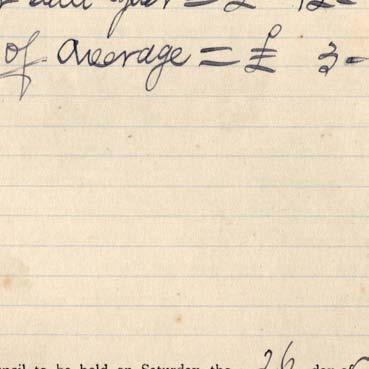 = £ 12-
of average = £ 3-
ncil to be held on Saturday, the 26 day of